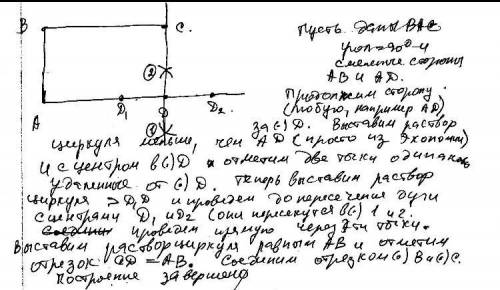 B
C.
②
A
D₁
D
D₂
①
Пусть даны
угол = 90° и
смежные стороны
AB и AD.
Продолжим сторону
(любую, например AD)
за (•) D. Выставим раствор
циркуля меньше, чем AD (просто из экономии)
и с центром в (•) D отметим две точки одинаково
удаленные от (•) D. Теперь выставим раствор
циркуля > D₁D и проведем до пересечения дуги
с центрами D₁ и D₂ (они пересекутся в (•) 1 и 2.
проведем прямую через эти точки.
Выставим раствор циркуля равным AB и отметим
отрезок CD = AB. Соединим отрезком (•) B и (•) C.
Построение завершено